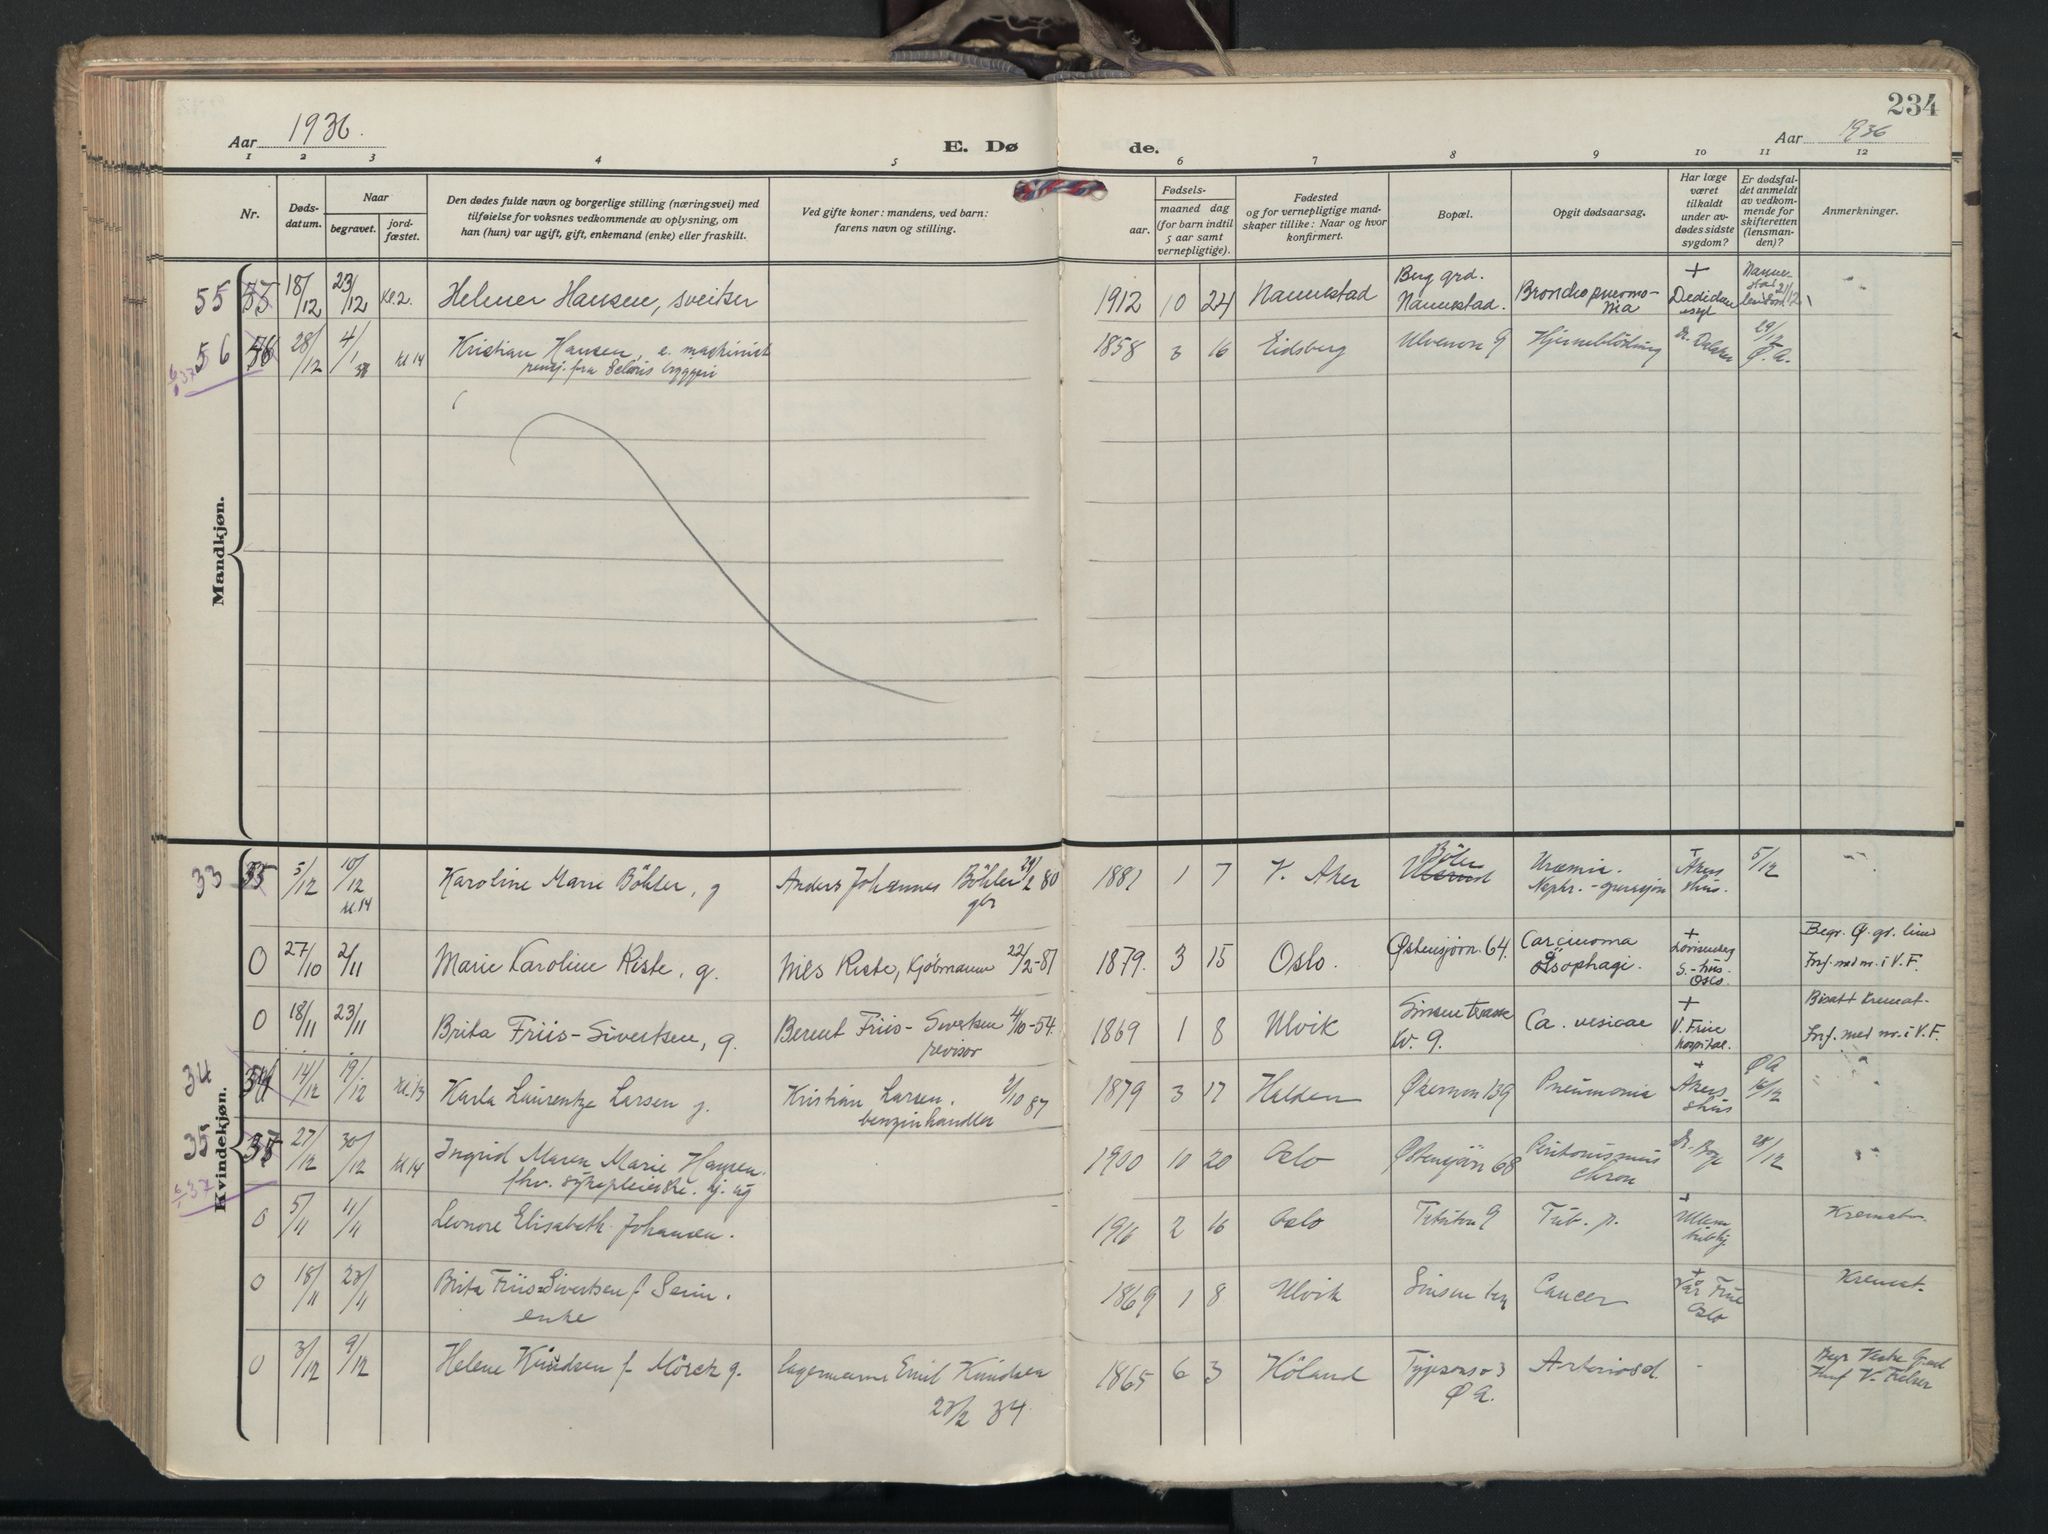 234
Aar 1936.
E. Dø
de.
Aar 1936
1 2 3 4 5 6 7 8 9 10 11 12
Nr.
Døds-
datum.
Naar
begravet.
jord-
fæstet.
Den dødes fulde navn og borgerlige stilling (næringsvei) med
tilføielse for voksnes vedkommende av oplysning, om
han (hun) var ugift, gift, enkemand (enke) eller fraskilt.
Ved gifte koner: mandens, ved barn:
farens navn og stilling.
Fødsels-
aar.
maaned dag
(for barn indtil
5 aar samt
vernepligtige).
Fødested
og for vernepligtige mand-
skaper tillike: Naar og hvor
konfirmert.
Bopæl.
Opgit dødsaarsag.
Har læge
været
tilkaldt
under av-
dødes sidste
sygdom?
Er dødsfal-
det anmeldt
av vedkom-
mende for
skifteretten
(lensman-
den)?
Anmerkninger.
Mandkjøn.
55 18/12 23/12 Kl. 2. Helmer Hansen, sveitser 1912 10 24 Nannestad Berg grd. Nannestad. Bronchopneumo-
nia +
56 28/12 4/1 37 kl 14 Kristian Hansen, e. maskinist 1858 3 16 Eidsberg Ulvenvn 9 Hjerneblödning 29/12 Ø. A.
6/1 37
Kvindekjøn.
33 5/12 10/12 kl. 14 Karoline Marie Böhler, g Anders Johannes Böhler 29/2 80
gbr 1881 1 7 V. Aker Böler Uræmi. + Akers-
hus. 5/12
0 27/10 2/11 Marie Karoline Riste, g. Nils Riste, Kjöbmann 22/2-81 1879. 3 15 Oslo. Østensjövn. 64. Carcinoma
oesophagi. + Lovisenberg
S.-hus
Oslo Begr. Ø. gr. lund
Inf. med nr. i V. F.
0 18/11 23/11 Brita Friis-Sivertsen, g. Berent Friis-Sivertsen 4/10-54.
revisor 1869 1 8 Ulvik Sinsen terrasse
9. Ca. vesicae + V. Frue
hospital. Bisatt Kremat.
Inf. med nr. i V. F.
34 14/12 19/12 kl. 13 Karla Laurentze Larsen g. Kristian Larsen. 87
benzinhandler 1879 3 17 Halden Økernvn 139 Pneumonia + Akers-
hus Ø A 16/12
35 27/12 30/12 kl 14 Ingrid Maren Marie Hansen.
fhv. sykepleierske. ug 1900 10 20 Oslo Østensjövn 68 28/12
6/1 37
0 5/4 11/4 Leonore Elisabeth Johansen. 1916 2 16 Oslo Tub. p. + Kremat.
0 18/11 23/11 Brita Friis-Sivertsen f.
enke 1869 1 8 Ulvik Sinsen ter Cancer + Vår Frue
Oslo Kremat.
0 3/12 9/12 Helene Knudsen f. Mörck g. lagermann Emil Knudsen
34 1865 6 3 Höland Ø A. Begr Vestre Grav
Inf V. Frelser